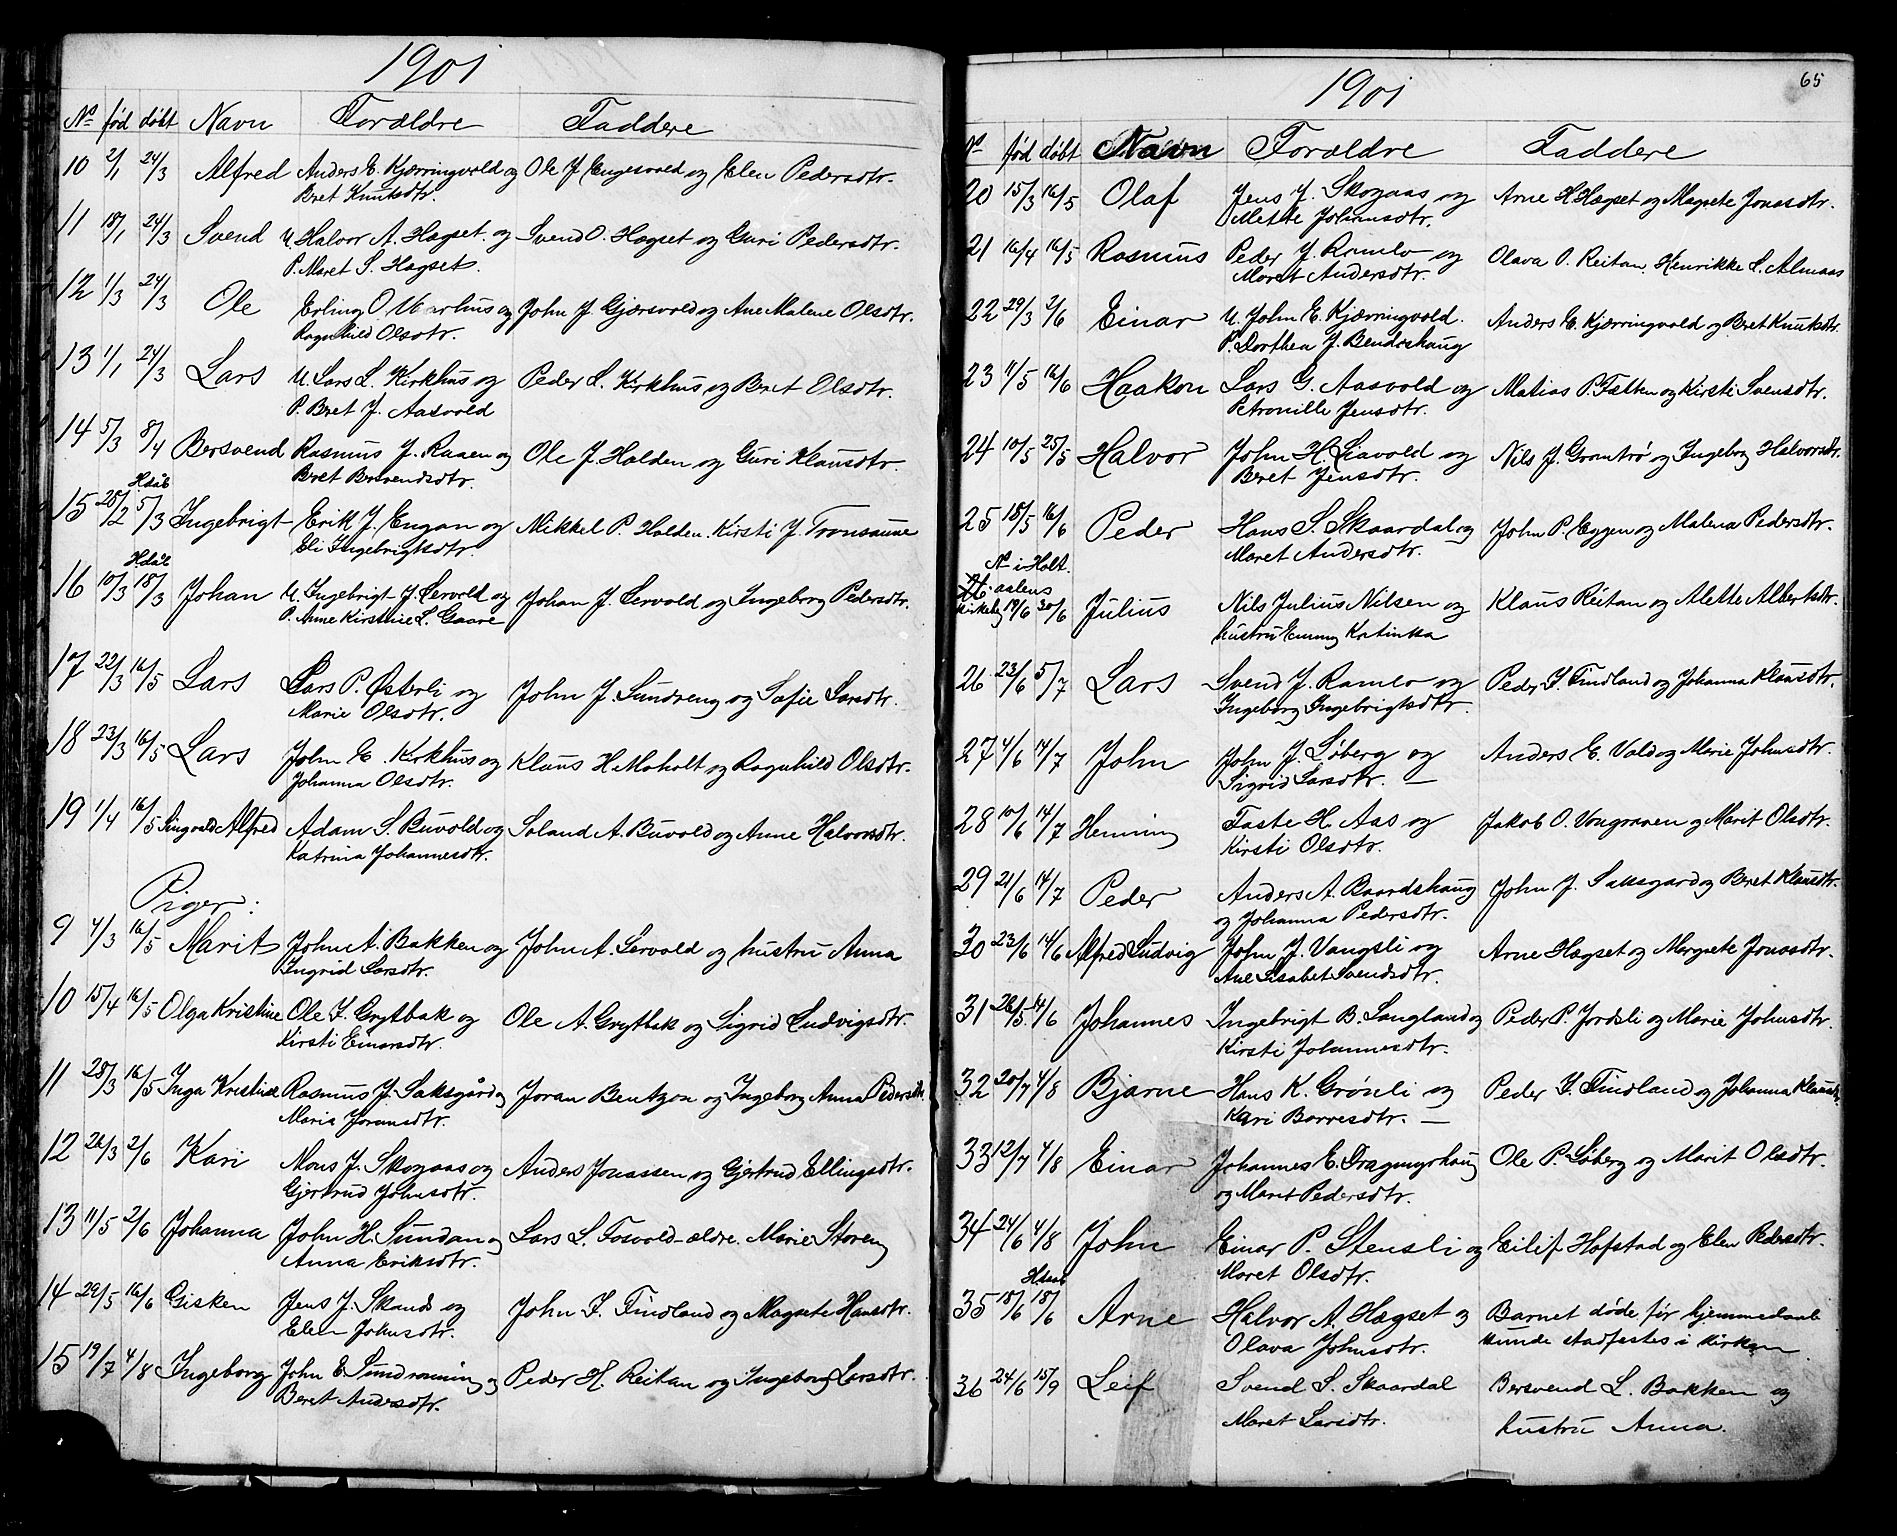 1901
No født døbt Navn Forældre Faddere
10 2/1 24/3 Alfred Anders E. Kjærringvold og Ole J Engesvold og Elen Pedersdtr.
Bret Knutsdtr.
11 18/1 24/3 Svend U. Halvor A. Hægset. og Svend O. Hægset og Guri Pedersdtr.
P. Maret S. Hægset.
12 1/3 24/3 Ole Erling O. Aarhus og John J. Gjærsvold og Ane Malene Olsdtr.
Ragnhild Olsdtr.
13 1/1 24/3 Lars U. Lars L. Kirkhus og Peder L. Kirkhus og Beret Olsdtr.
P. Bret J. Aasvold
14 5/3 8/4 Bersvend Rasmus J. Raaen og Ole J. Holden og Guri Klausdtr.
Beret Bersvendsdtr.
Hdåb
15 28/2 5/3 Ingebrigt Erik J. Engan og Mikkel P. Holden. Kirsti J. Tronsaune
Eli Ingebrigtsdtr.
Hdåb
16 10/3 18/3 Johan U. Ingebrigt J. Lervold og Johan J. Lervold og Ingeborg Pedersdtr.
P. Anne Kirstine L. Gaare
17 22/3 16/5 Lars Lars P. Østerli og John J. Sundeng og Sofie Larsdtr.
Marie Olsdtr.
18 23/3 16/5 Lars John E. Kirkhus og Klaus H. Moholt og Ragnhild Olsdtr.
Johanna Olsdtr.
19 1/4 16/5 Singvald Alfred Adam S. Buvold og Soland A. Buvold og Anne Halvorsdtr.
Katrina Johannesdtr.
Piger:
9 4/3 16/5 Marit John A. Bakken og John A. Lervold og hustru Anna
Ingrid Larsdtr.
10 15/4 16/5 Olga Kristine Ole I. Grytbak og Ole A. Grytbak og Sigrid Ludvigsdtr.
Kirsti Einarsdtr.
11 28/3 16/5 Inga Kristine Rasmus J. Saksgård og Joran Bentzon og Ingeborg Anna Pedersdtr.
Maria Joransdtr.
12 26/3 2/6 Kari Mons J. Skogaas og Anders Jonassen og Gjertrud Ellingsdtr.
Gjertrud Johnsdtr.
13 11/5 2/6 Johanna John H. Sundan og Lars L. Fosvold ældre. Marie Storeng
Anna Eriksdtr.
14 29/5 16/6 Gisken Jens J. Skands og John I. Tindland og Magrete Hansdtr.
Elen Johnsdtr.
15 19/7 4/8 Ingeborg John E. Sundmoning og Peder H. Reitan og Ingeborg Larsdtr.
Beret Andersdtr.
65
1901
No født døbt Navn Forældre Faddere
20 15/3 16/5 Olaf Jens J. Skogaas og Arne H. Hægset og Magrete Jonasdtr.
Mette Johansdtr.
21 16/4 16/5 Rasmus Peder J. Ramlo og Olava O. Reitan. Henrikke L. Almaas
Maret Andersdtr.
22 29/3 2/6 Einar U. John E. Kjærringvold. Anders E. Kjærringvold og Beret Knutsdtr.
P. Dorthea J. Bendoshaug
23 11/5 16/6 Haakon Lars G. Aasvold og Matias P. Fatten og Kirsti Svensdtr.
Petronille Jensdtr.
24 10/5 25/5 Halvor John H. Liavold og Nils J. Grøntrø og Ingeborg Halvorsdtr.
Beret Jensdtr.
25 18/5 16/6 Peder Hans S. Skaardal og John P. Eggen og Malena Pedersdtr.
Maret Andersdtr.
No i Holt
aalens
Kirkebog 19/6 30/6 Julius Nils Julius Nilsen og Klaus Reitan og Alette Albertsdtr.
hustru Emmy Katinka
26 23/6 5/7 Lars Svend J. Ramlo og Peder I. Tindland og Johanna Klausdtr.
Ingeborg Ingebrigtsdtr.
27 4/6 14/7 John John J. Løberg og Anders E. Vold og Merie Johnsdtr.
Sigrid Larsdtr. —
28 10/6 14/7 Henning Faste H. Aas og Jakob O. Vongraven og Marit Olsdtr.
Kirsti Olsdtr.
29 21/6 14/7 Peder Anders A. Baardshaug John J. Saksgard og Beret Klausdtr.
og Johanna Pedersdtr.
30 23/6 14/6 Alfred Ludvig John J. Vangsli og Arne Hægset og Mergrete Jonasdtr.
Ane Elisabet Svendsdtr.
31 26/5 14/6 Johannes Ingebrigt B. Langland og Peder P. Jordsli og Marie Johnsdtr.
Kirsti Johannesdtr.
32 20/7 4/8 Bjarne Hans K. Grønli og Peder I. Tindland og Johanna Klausdtr.
Kari Borresdtr. —
33 12/7 4/8 Einar Johannes E. Dragmyrhaug Ole P. Løberg og Marit Olsdtr.
og Maret Pedersdtr.
34 24/6 4/8 John Einar P. Stensli og Eilif Hofstad og Elen Pedersdtr.
Maret Olsdtr.
Hdaab
35 18/6 18/6 Arne Halvor A. Hægset og Barnet døde før hjemmedaab
Olava Johnsdtr. kunde stadfestes i kirken.
36 24/6 15/9 Leif Svend S. Skaardal Bersvend L. Bakken og
Maret Larsdtr. hustru Anna.